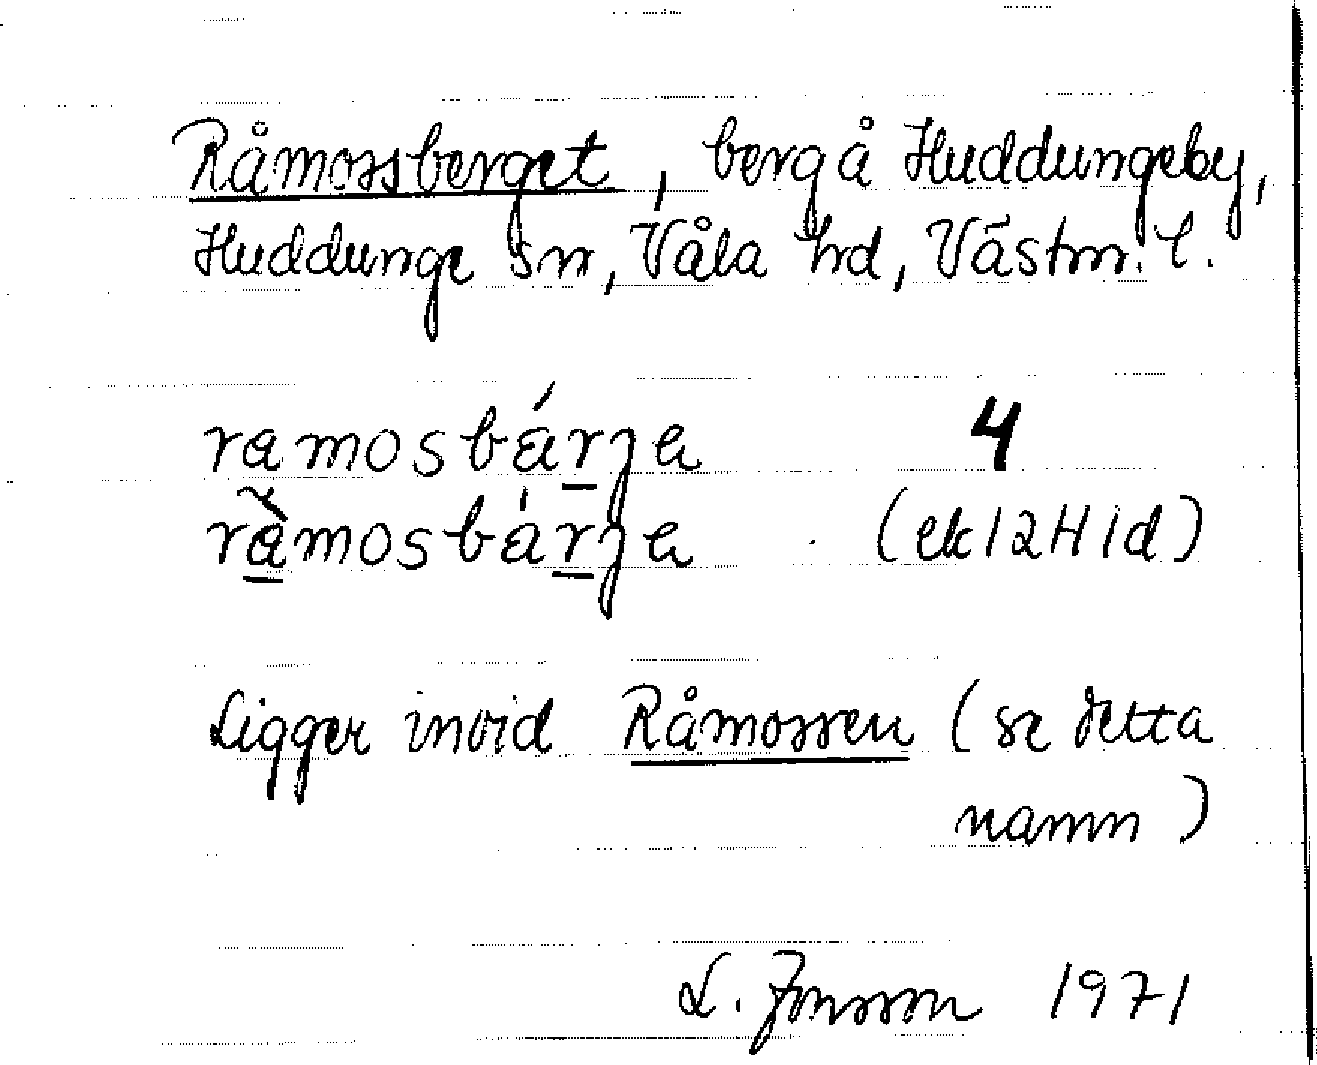 Råmossberget, berg å Huddungeby,
Huddunge sn, Våla hd, Västm. l.
ramosbárja 4
ràmosbárja (ek 12H1d)
Ligger invid Råmossen (se detta
namn)
L. Jonsson 1971